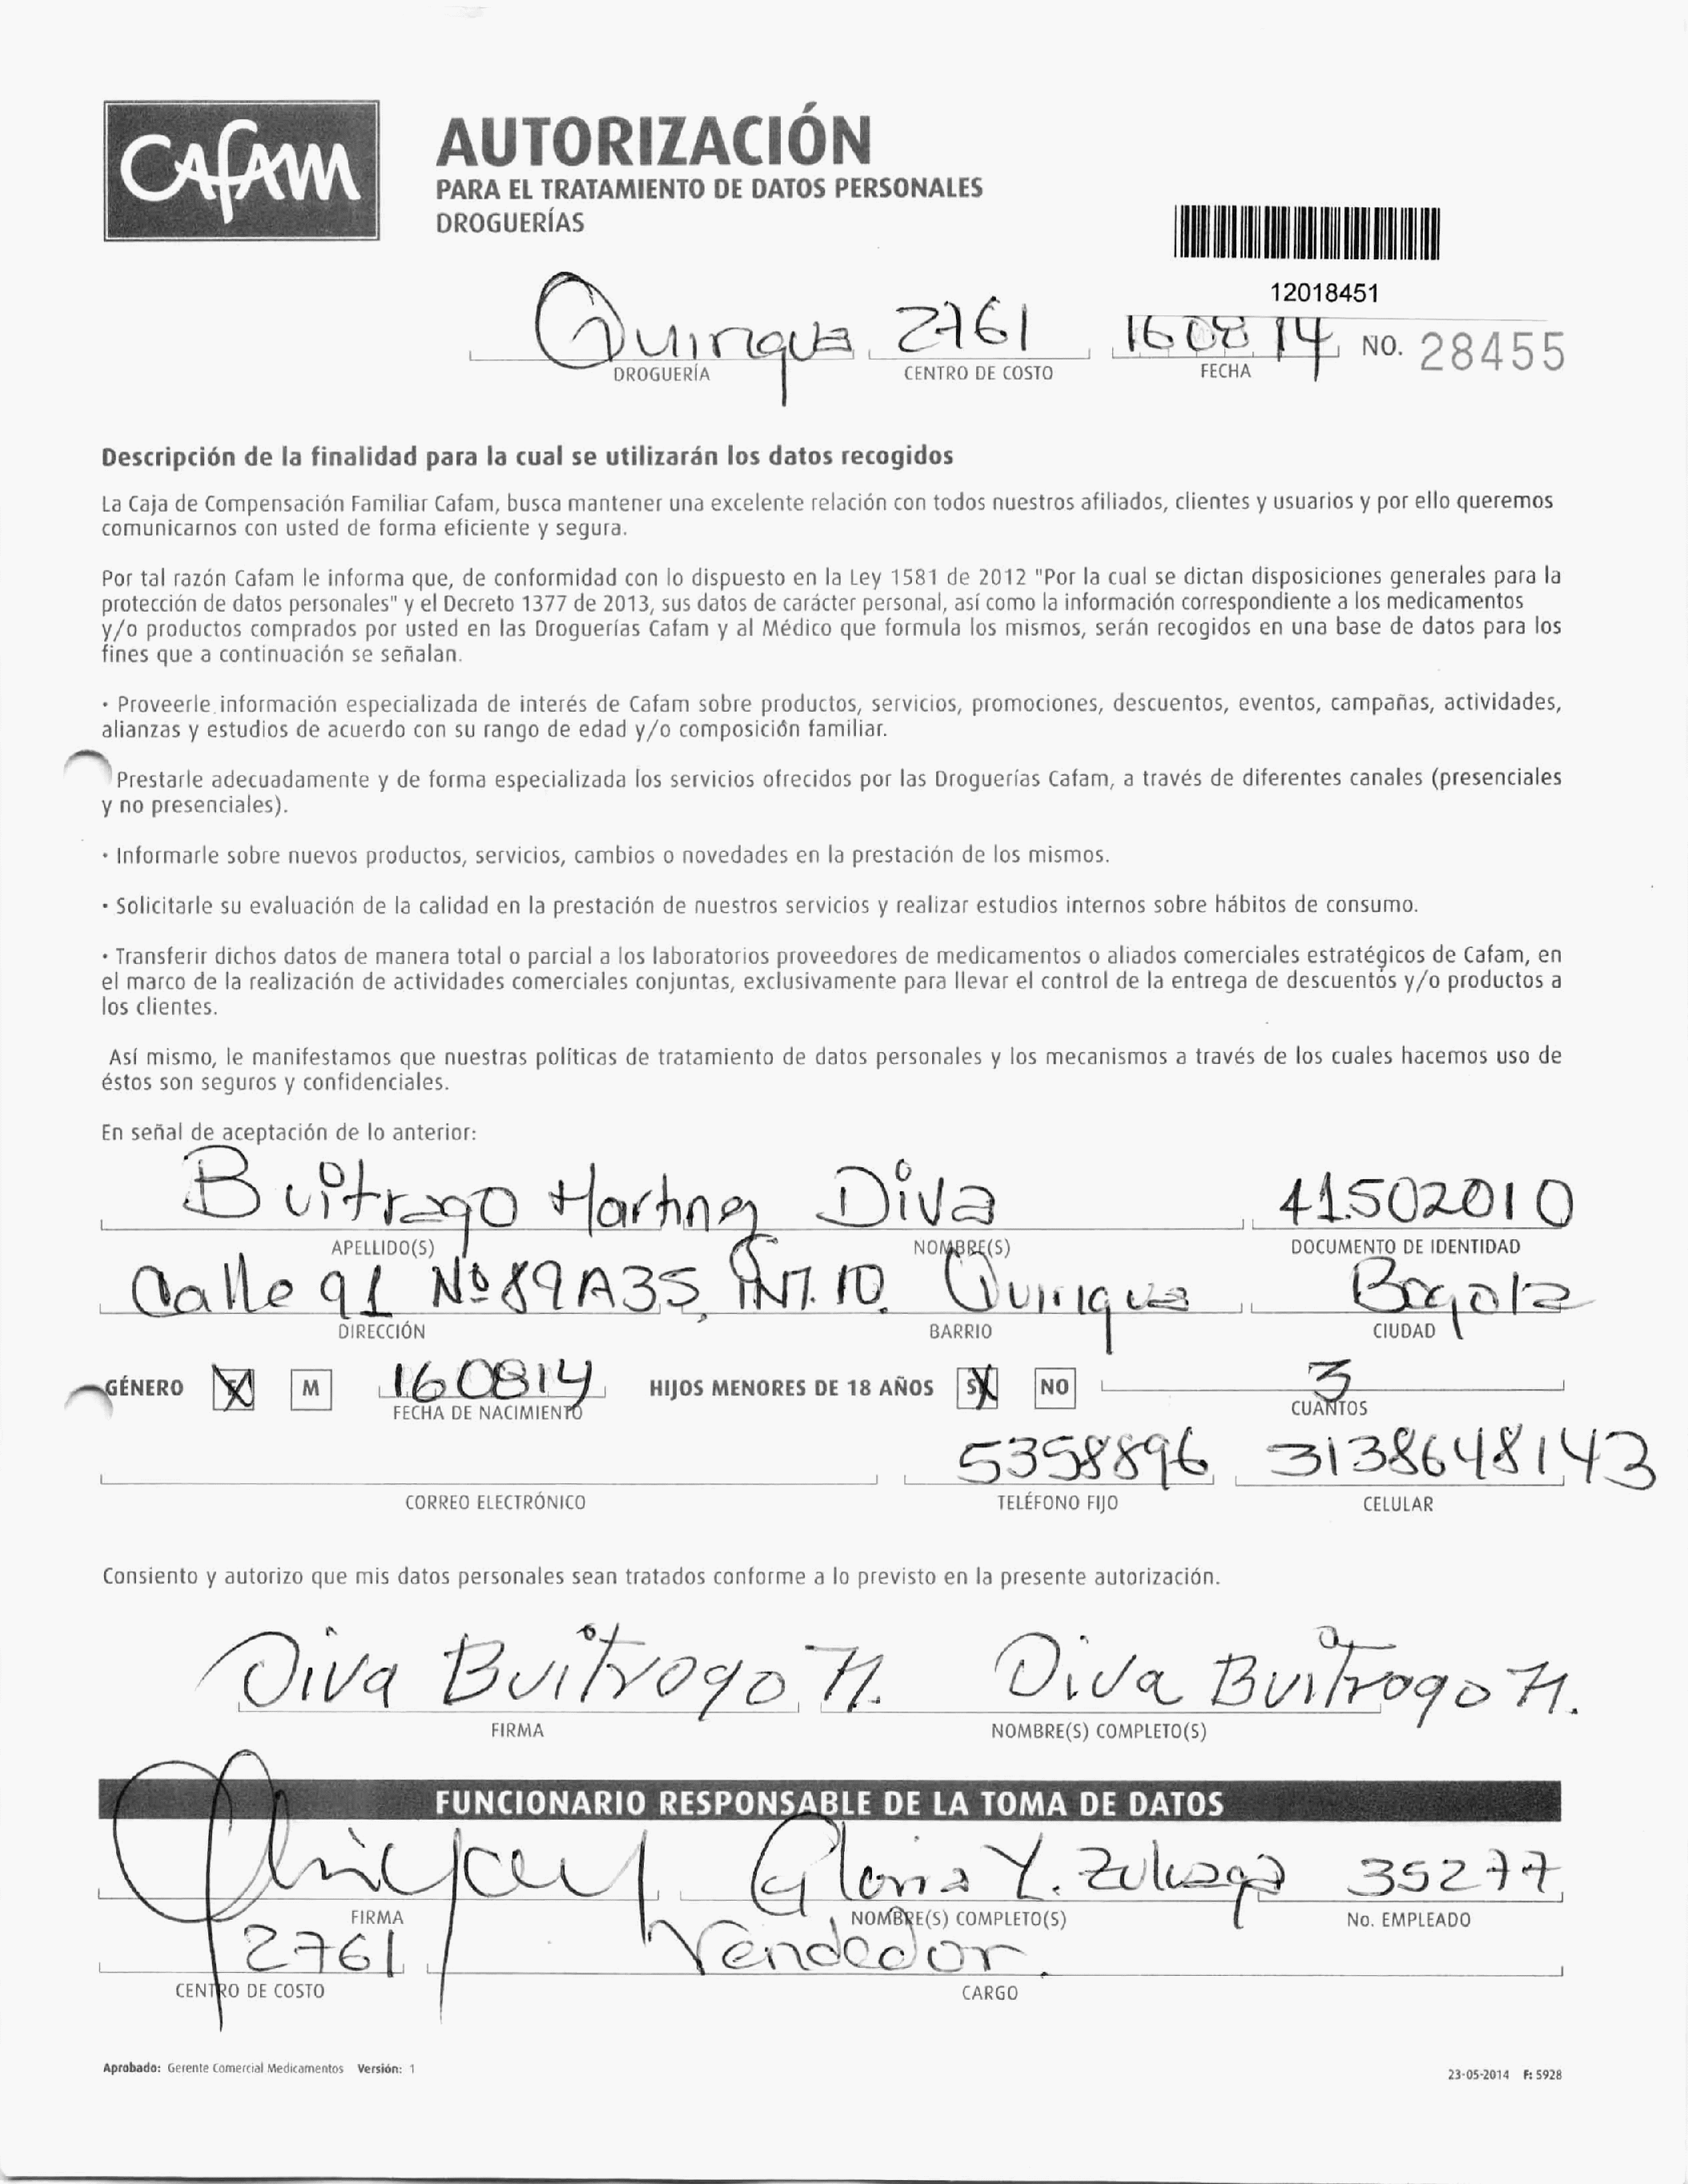 CAFAM
AUTORIZACIÓN
PARA EL TRATAMIENTO DE DATOS PERSONALES
DROGUERÍAS
12018451
Quirigua 2761 160814 NO. 28455
DROGUERÍA CENTRO DE COSTO FECHA
Descripción de la finalidad para la cual se utilizarán los datos recogidos
La Caja de Compensación Familiar Cafam, busca mantener una excelente relación con todos nuestros afiliados, clientes y usuarios y por ello queremos
comunicarnos con usted de forma eficiente y segura.
Por tal razón Cafam le informa que, de conformidad con lo dispuesto en la Ley 1581 de 2012 "Por la cual se dictan disposiciones generales para la
protección de datos personales" y el Decreto 1377 de 2013, sus datos de carácter personal, así como la información correspondiente a los medicamentos
y/o productos comprados por usted en las Droguerías Cafam y al Médico que formula los mismos, serán recogidos en una base de datos para los
fines que a continuación se señalan.
· Proveerle información especializada de interés de Cafam sobre productos, servicios, promociones, descuentos, eventos, campañas, actividades,
alianzas y estudios de acuerdo con su rango de edad y/o composición familiar.
Prestarle adecuadamente y de forma especializada los servicios ofrecidos por las Droguerías Cafam, a través de diferentes canales (presenciales
y no presenciales).
· Informarle sobre nuevos productos, servicios, cambios o novedades en la prestación de los mismos.
· Solicitarle su evaluación de la calidad en la prestación de nuestros servicios y realizar estudios internos sobre hábitos de consumo.
· Transferir dichos datos de manera total o parcial a los laboratorios proveedores de medicamentos o aliados comerciales estratégicos de Cafam, en
el marco de la realización de actividades comerciales conjuntas, exclusivamente para llevar el control de la entrega de descuentos y/o productos a
los clientes.
Así mismo, le manifestamos que nuestras políticas de tratamiento de datos personales y los mecanismos a través de los cuales hacemos uso de
éstos son seguros y confidenciales.
En señal de aceptación de lo anterior:
Buitrago Martinez Diva 41502010
APELLIDO(S) NOMBRE(S) DOCUMENTO DE IDENTIDAD
Calle 91 Nº 89A35, INT. 10. Quirigua Bogota
DIRECCIÓN BARRIO CIUDAD
GÉNERO X M 160814 HIJOS MENORES DE 18 AÑOS SI X NO 3
FECHA DE NACIMIENTO CUANTOS
5358896 3138648143
CORREO ELECTRÓNICO TELÉFONO FIJO CELULAR
Consiento y autorizo que mis datos personales sean tratados conforme a lo previsto en la presente autorización.
Diva Buitrago M. Diva Buitrago M.
FIRMA NOMBRE(S) COMPLETO(S)
FUNCIONARIO RESPONSABLE DE LA TOMA DE DATOS
Gloria Y. Zuluaga 35277
FIRMA NOMBRE(S) COMPLETO(S) No. EMPLEADO
2761 Vendedor.
CENTRO DE COSTO CARGO
Aprobado: Gerente Comercial Medicamentos Versión: 1
23-05-2014 F: 5928